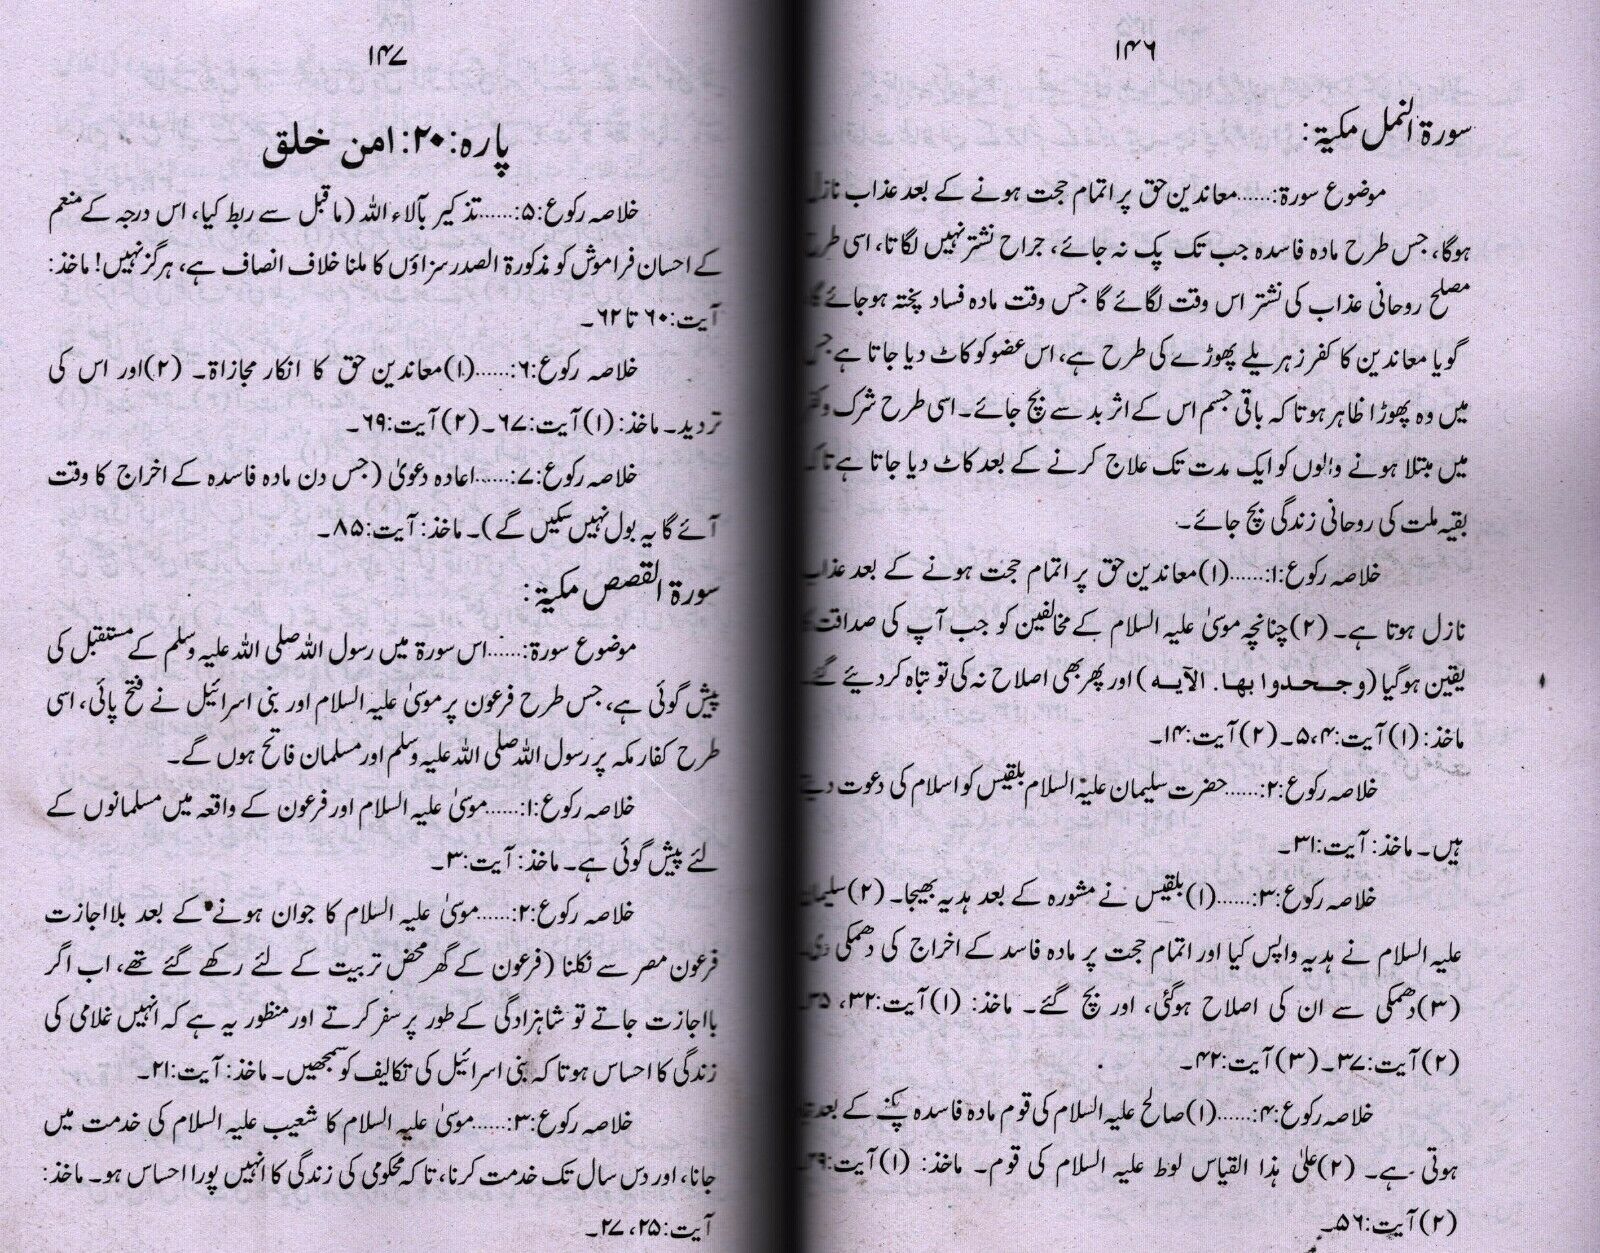 ۱۴۶
سورۃ النمل مکیۃ:
موضوع سورۃ:......معاندین حق پر اتمام حجت ہونے کے بعد عذاب نازل
ہوگا، جس طرح مادہ فاسدہ جب تک پک نہ جائے، جراح نشتر نہیں لگاتا، اسی طرح
مصلح روحانی عذاب کی نشتر اس وقت لگائے گا جس وقت مادہ فساد پختہ ہوجائے گا،
گویا معاندین کا کفر زہریلے پھوڑے کی طرح ہے، اس عضو کو کاٹ دیا جاتا ہے جس
میں وہ پھوڑا ظاہر ہوتا کہ باقی جسم اس کے اثر بد سے بچ جائے۔ اسی طرح شرک وکفر
میں مبتلا ہونے والوں کو ایک مدت تک علاج کرنے کے بعد کاٹ دیا جاتا ہے تاکہ
بقیہ ملت کی روحانی زندگی بچ جائے۔
خلاصہ رکوع:۱:......(۱)معاندین حق پر اتمام حجت ہونے کے بعد عذاب
نازل ہوتا ہے۔ (۲)چنانچہ موسیٰ علیہ السلام کے مخالفین کو جب آپ کی صداقت کا
یقین ہوگیا (وجحدوا بها. الآیه) اور پھر بھی اصلاح نہ کی تو تباہ کر دیئے گئے۔
ماخذ: (۱)آیت:۴،۵۔ (۲)آیت:۱۴۔
خلاصہ رکوع:۲:......حضرت سلیمان علیہ السلام بلقیس کو اسلام کی دعوت دیتے
ہیں۔ ماخذ: آیت:۳۱۔
خلاصہ رکوع:۳:......(۱)بلقیس نے مشورہ کے بعد ہدیہ بھیجا۔ (۲)سلیمان
علیہ السلام نے ہدیہ واپس کیا اور اتمام حجت پر مادہ فاسد کے اخراج کی دھمکی دی۔
(۳)دھمکی سے ان کی اصلاح ہوگئی، اور بچ گئے۔ ماخذ: (۱)آیت:۳۲، ۳۵۔
(۲)آیت:۳۷۔ (۳)آیت:۴۲۔
خلاصہ رکوع:۴:......(۱)صالح علیہ السلام کی قوم مادہ فاسدہ پکنے کے بعد
ہوتی ہے۔ (۲)علیٰ ہذا القیاس لوط علیہ السلام کی قوم۔ ماخذ: (۱)آیت:
(۲)آیت:۵۶۔
۱۴۷
پارہ:۲۰: امن خلق
خلاصہ رکوع:۵:......تذکیر بآلاء اللہ (ماقبل سے ربط کیا، اس درجہ کے منعم
کے احسان فراموش کو مذکورۃ الصدر سزاؤں کا ملنا خلاف انصاف ہے، ہرگز نہیں! ماخذ:
آیت:۶۰ تا ۶۲۔
خلاصہ رکوع:۶:......(۱)معاندین حق کا انکار مجازاۃ۔ (۲)اور اس کی
تردید۔ ماخذ: (۱)آیت:۶۷۔ (۲)آیت:۶۹۔
خلاصہ رکوع:۷:......اعادہ دعویٰ (جس دن مادہ فاسدہ کے اخراج کا وقت
آئے گا یہ بول نہیں سکیں گے)۔ ماخذ: آیت:۸۵۔
سورۃ القصص مکیۃ:
موضوع سورۃ:......اس سورۃ میں رسول اللہ صلی اللہ علیہ وسلم کے مستقبل کی
پیش گوئی ہے، جس طرح فرعون پر موسیٰ علیہ السلام اور بنی اسرائیل نے فتح پائی، اسی
طرح کفار مکہ پر رسول اللہ صلی اللہ علیہ وسلم اور مسلمان فاتح ہوں گے۔
خلاصہ رکوع:۱:......موسیٰ علیہ السلام اور فرعون کے واقعہ میں مسلمانوں کے
لئے پیش گوئی ہے۔ ماخذ: آیت:۳۔
خلاصہ رکوع:۲:......موسیٰ علیہ السلام کا جوان ہونے کے بعد بلااجازت
فرعون مصر سے نکلنا (فرعون کے گھر محض تربیت کے لئے رکھے گئے تھے، اب اگر
بااجازت جاتے تو شاہزادگی کے طور پر سفر کرتے اور منظور یہ ہے کہ انہیں غلامی کی
زندگی کا احساس ہوتا کہ بنی اسرائیل کی تکالیف کو سمجھیں۔ ماخذ: آیت:۲۱۔
خلاصہ رکوع:۳:......موسیٰ علیہ السلام کا شعیب علیہ السلام کی خدمت میں
جانا، اور دس سال تک خدمت کرنا، تاکہ محکومی کی زندگی کا انہیں پورا احساس ہو۔ ماخذ:
آیت:۲۵، ۲۷۔